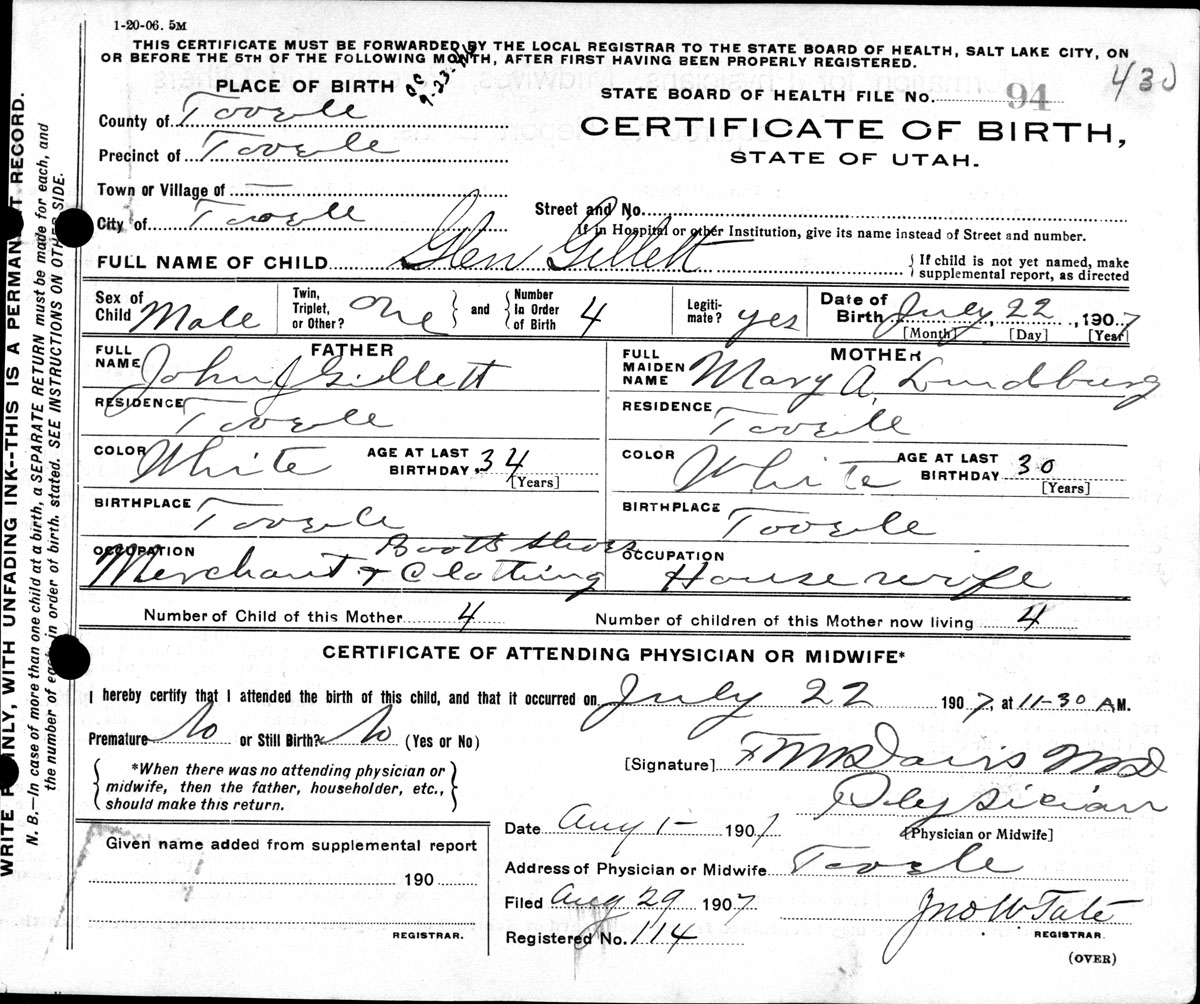 1-20-06. 5M
THIS CERTIFICATE MUST BE FORWARDED BY THE LOCAL REGISTRAR TO THE STATE BOARD OF HEALTH, SALT LAKE CITY, ON
OR BEFORE THE 5TH OF THE FOLLOWING MONTH, AFTER FIRST HAVING BEEN PROPERLY REGISTERED.
430
PLACE OF BIRTH
STATE BOARD OF HEALTH FILE No. 94
County of Tooele
CERTIFICATE OF BIRTH,
STATE OF UTAH.
Precinct of Tooele
Town or Village of —
City of Tooele
Street and No.
If in Hospital or other Institution, give its name instead of Street and number.
FULL NAME OF CHILD Glen Gillett
If child is not yet named, make
supplemental report, as directed
Sex of Child Male
Twin, Triplet, or Other? One
and
Number in Order of Birth 4
Legiti-mate? yes
Date of Birth July 22, 1907
[Month] [Day] [Year]
FATHER
FULL NAME John J Gillett
MOTHER
FULL MAIDEN NAME Mary A. Lundburg
RESIDENCE Tooele
RESIDENCE Tooele
COLOR White AGE AT LAST BIRTHDAY 34 [Years]
COLOR White AGE AT LAST BIRTHDAY 30 [Years]
BIRTHPLACE Tooele
BIRTHPLACE Tooele
OCCUPATION Merchant Boots Shoes & Clothing
OCCUPATION Housewife
Number of Child of this Mother 4
Number of children of this Mother now living 4
CERTIFICATE OF ATTENDING PHYSICIAN OR MIDWIFE*
I hereby certify that I attended the birth of this child, and that it occurred on July 22 1907, at 11-30 AM.
Premature No or Still Birth? No (Yes or No)
*When there was no attending physician or
midwife, then the father, householder, etc.,
should make this return.
[Signature] F M Davis MD
Physician
[Physician or Midwife]
Date Aug 1- 1907
Given name added from supplemental report
190
REGISTRAR.
Address of Physician or Midwife Tooele
Filed Aug 29 1907
Jno W Tate
REGISTRAR.
Registered No. 114
(OVER)
WRITE PLAINLY, WITH UNFADING INK--THIS IS A PERMANENT RECORD.
N. B.—In case of more than one child at a birth, a SEPARATE RETURN must be made for each, and
the number of each, in order of birth, stated. SEE INSTRUCTIONS ON OTHER SIDE.